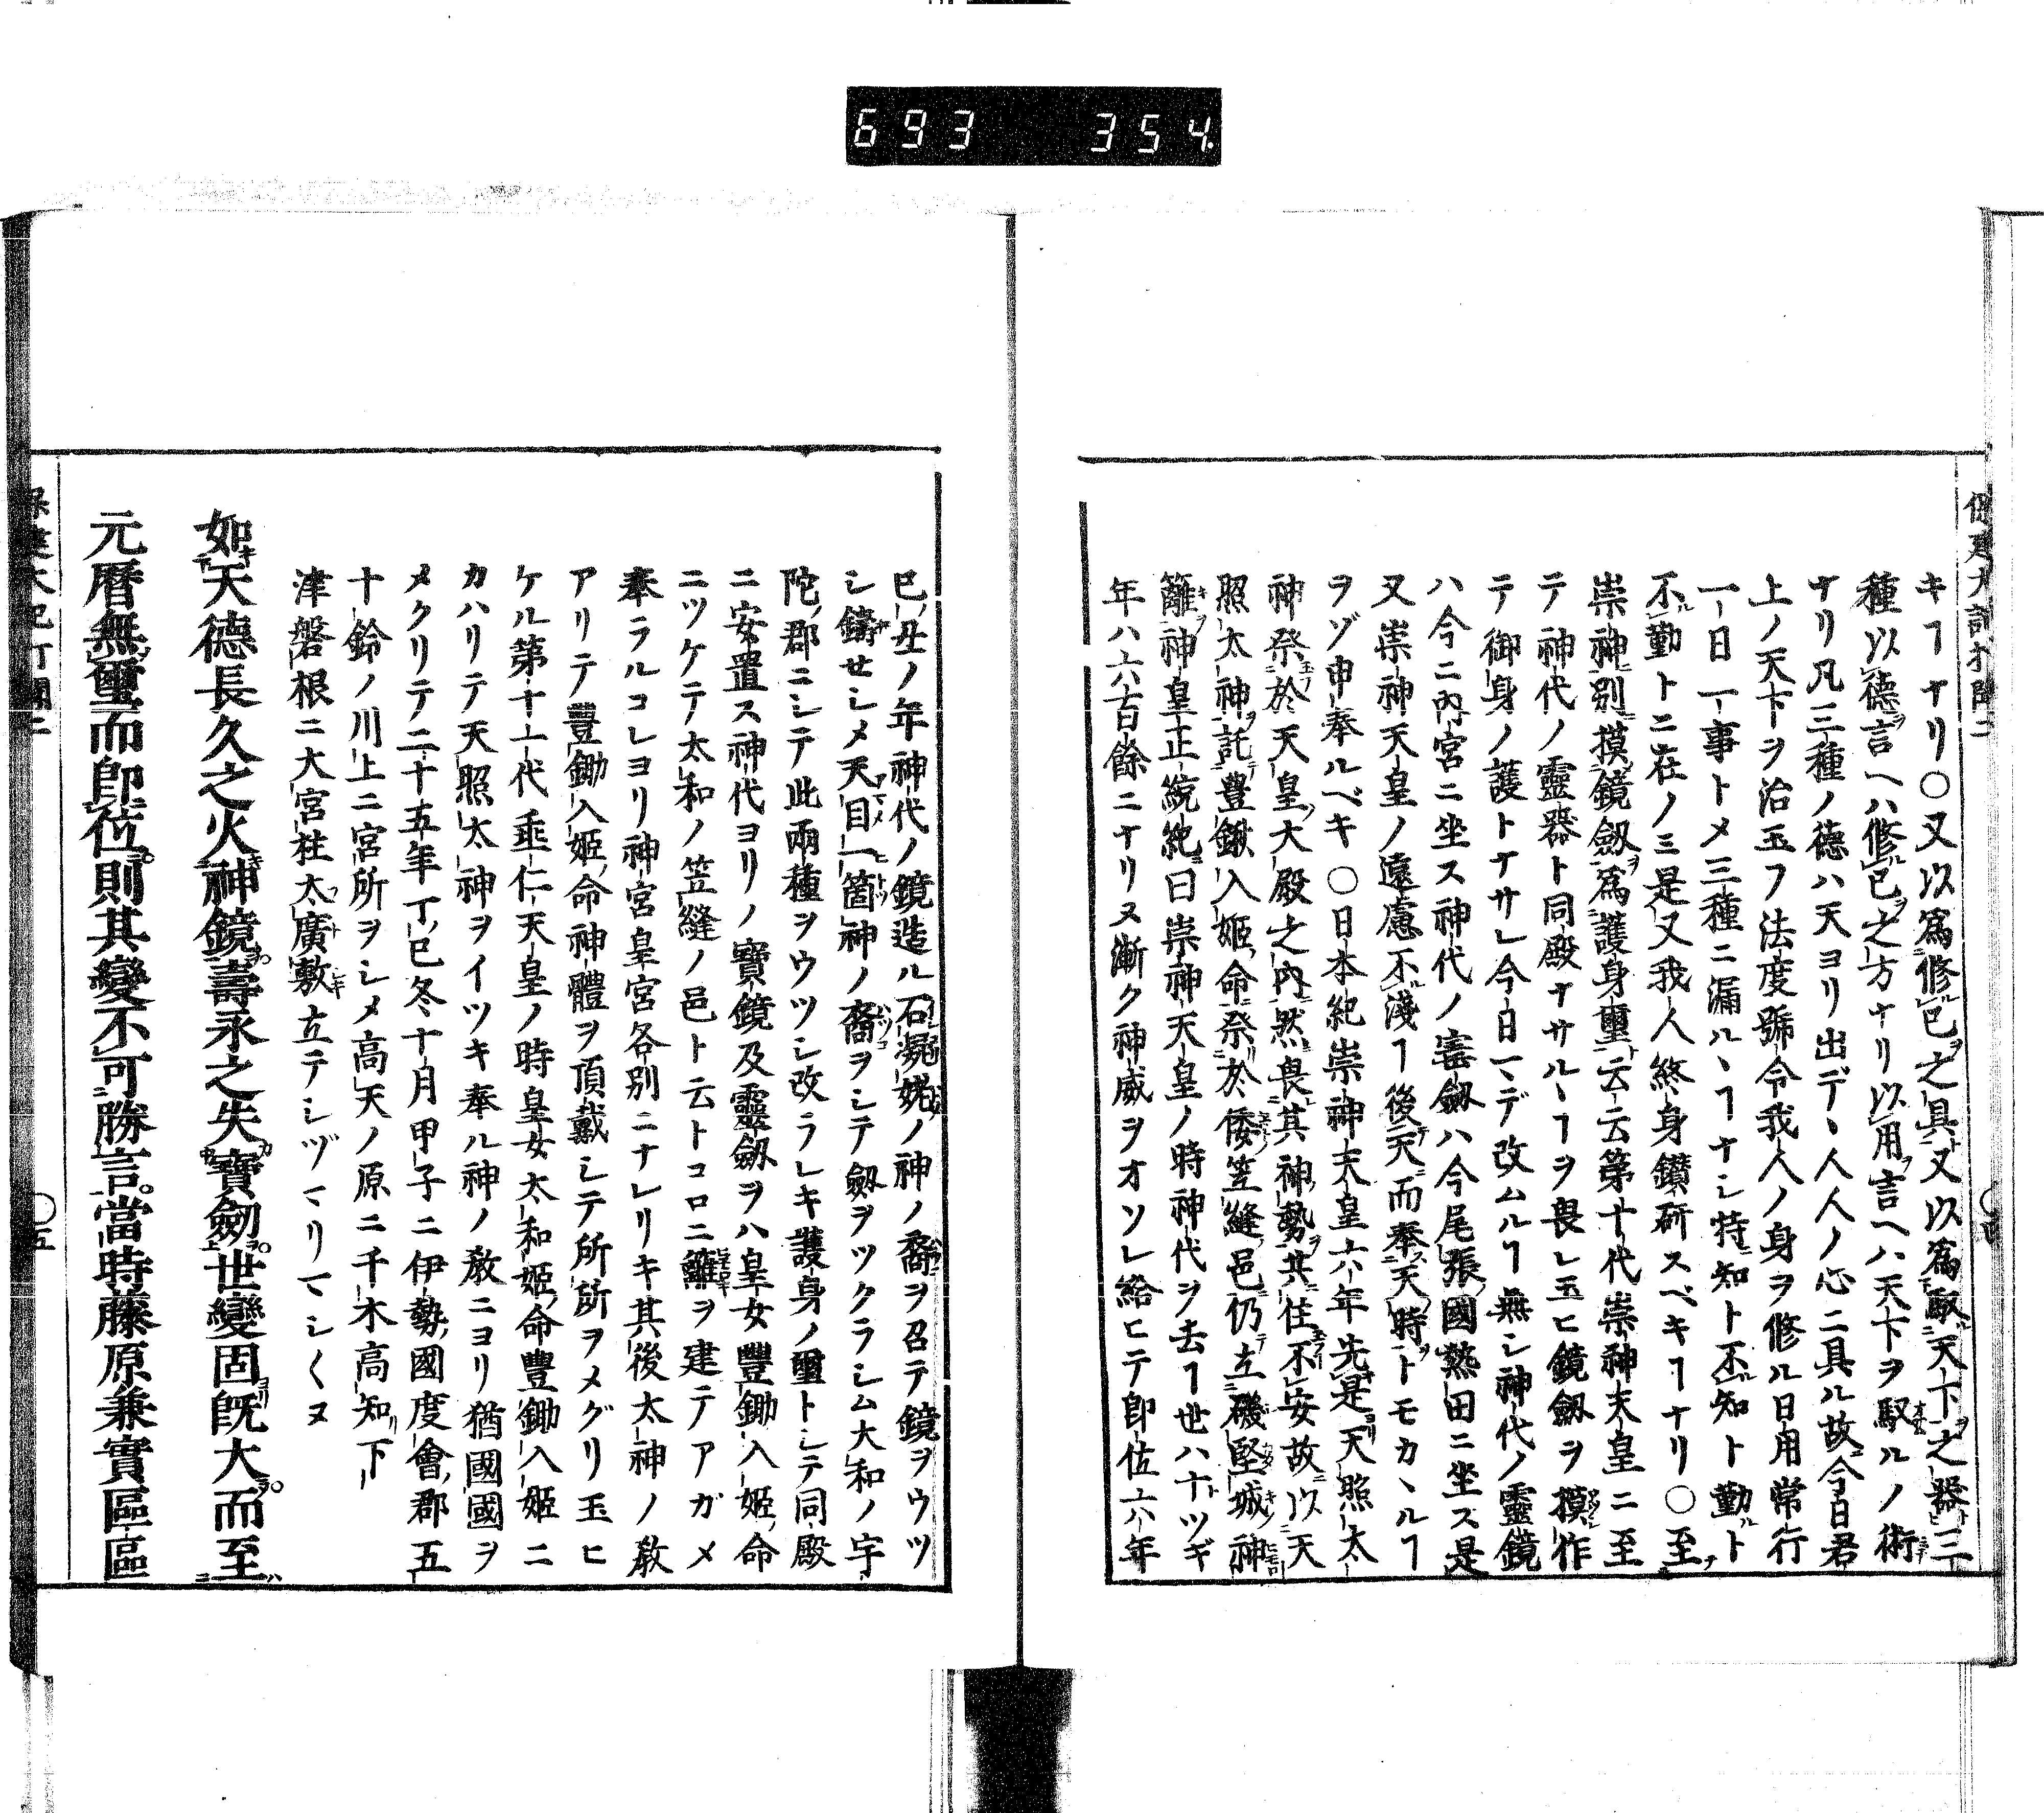 693 354
キヿナリ○又以爲修已之具又以爲馭天下之器三
種以德言ヘハ修已之方ナリ以用言ヘハ天下ヲ馭ルノ術
ナリ凡三種ノ德ハ天ヨリ出デ、人人ノ心ニ具ル故今日君
上ノ天下ヲ治玉フ法度號令我人ノ身ヲ修ル日用常行
一日一事トメ三種ニ漏ル、ヿナシ特知ト不知ト勤ト
不勤トニ在ノミ是又我人終身鑚研スベキヿナリ○至
崇神別摸鏡劔爲護身璽云云第十代崇神天皇ニ至
テ神代ノ靈器ト同殿ナサル、ヿヲ畏レ玉ヒ鏡劔ヲ摸作
テ御身ノ護トナサレ今日マデ改ムルヿ無シ神代ノ靈鏡
ハ今ニ內宮ニ坐ス神代ノ寳劔ハ今尾張國熱田ニ坐ス是
又崇神天皇ノ遠慮不淺ヿ後天而奉天時トモカヽルヿ
ヲゾ申奉ルベキ○日本紀崇神天皇六年先是天照太
神祭於天皇大殿之內然畏其神勢其住不安故以天
照太神託豊鍬入姬命祭於倭笠縫邑仍立磯堅城神
籬神皇正統紀曰崇神天皇ノ時神代ヲ去ヿ世ハ十ツギ
年ハ六百餘ニナリヌ漸ク神威ヲオソレ給ヒテ卽位六年
巳丑ノ年神代ノ鏡造ル石凝姥ノ神ノ裔ヲ召テ鏡ヲウツ
シ鑄セシメ天目一箇神ノ裔ヲシテ劔ヲツクラシム大和ノ宇
陀郡ニシテ此兩種ヲウツシ改ラレキ護身ノ璽トシテ同殿
ニ安置ス神代ヨリノ寶鏡及靈劔ヲハ皇女豐鋤入姬命
ニツケテ太和ノ笠縫ノ邑ト云トコロニ籬ヲ建テアガメ
奉ラルコレヨリ神宮皇宮各別ニナレリキ其後太神ノ敎
アリテ豐鋤入姬命神體ヲ頂戴シテ所所ヲメグリ玉ヒ
ケル第十一代垂仁天皇ノ時皇女太和姬命豐鋤入姬ニ
カハリテ天照太神ヲイツキ奉ル神ノ敎ニヨリ猶國國ヲ
メクリテ二十五年丁巳冬十月甲子ニ伊勢國度會郡五
十鈴ノ川上ニ宮所ヲシメ高天ノ原ニ千木高知下
津磐根ニ大宮柱太廣敷立テシヅマリマシ〱ヌ
如天德長久之火神鏡壽永之失寶劒世變固旣大而至
元曆無璽而卽位則其變不可勝言當時藤原兼實區區
○五